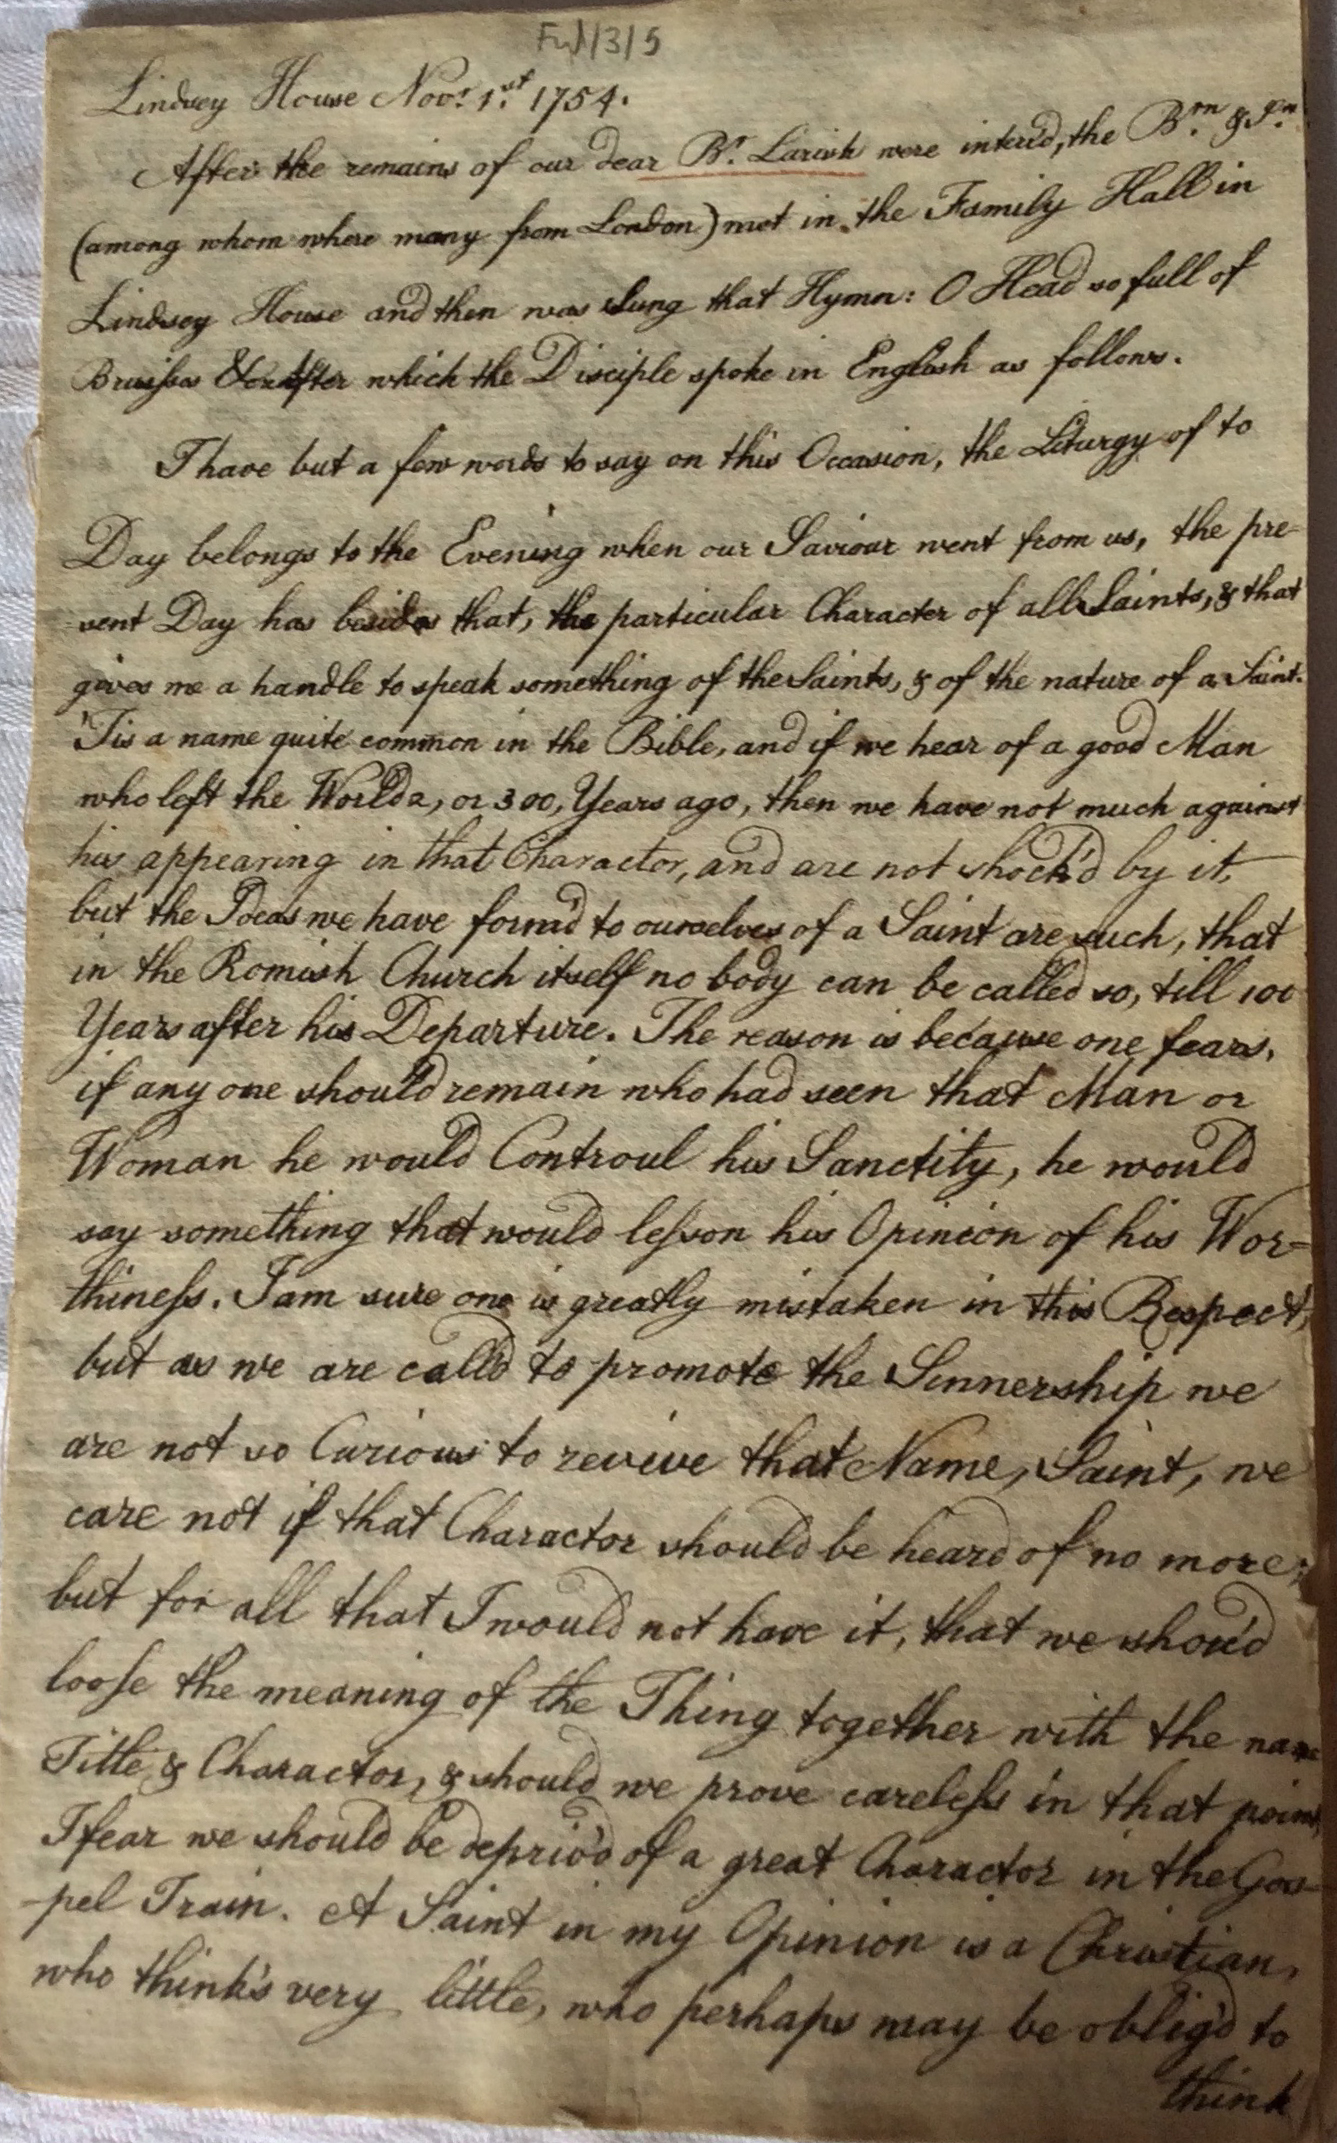 Ful/3/5
Lindsey House Nov.r 1.st 1754.
After the remains of our dear Br. Larish were inter'd, the B.rn & S.rs
(among whom where many from London) met in the Family Hall in
Lindsey House and then was Sung that Hymn: O Head so full of
Bruises &c. After which the Disciple spoke in English as follows.
I have but a few words to say on this Occasion, the Liturgy of to
Day belongs to the Evening when our Saviour went from us, the pre-
sent Day has besides that, the particular Character of all Saints, & that
gives me a handle to speak something of the Saints, & of the nature of a Saint.
'Tis a name quite common in the Bible, and if we hear of a good Man
who left the World 2, or 300, Years ago, then we have not much against
his appearing in that Character, and are not shock'd by it,
but the Ideas we have form'd to ourselves of a Saint are such, that
in the Romish Church itself no body can be called so, till 100
Years after his Departure. The reason is because one fears,
if any one should remain who had seen that Man or
Woman he would Controul his Sanctity, he would
say something that would lesson his Opinion of his Wor=
thiness. I am sure one is greatly mistaken in this Respect,
but as we are call'd to promote the Sinnership we
are not so Curious to revive that Name, Saint, we
care not if that Charactor should be heard of no more;
but for all that I would not have it, that we shou'd
loose the meaning of the Thing together with the name
Title & Charactor, & should we prove careless in that point,
I fear we should be depriv'd of a great Charactor in the Gos-
-pel Train. A Saint in my Opinion is a Christian,
who think's very little, who perhaps may be oblig'd to
think